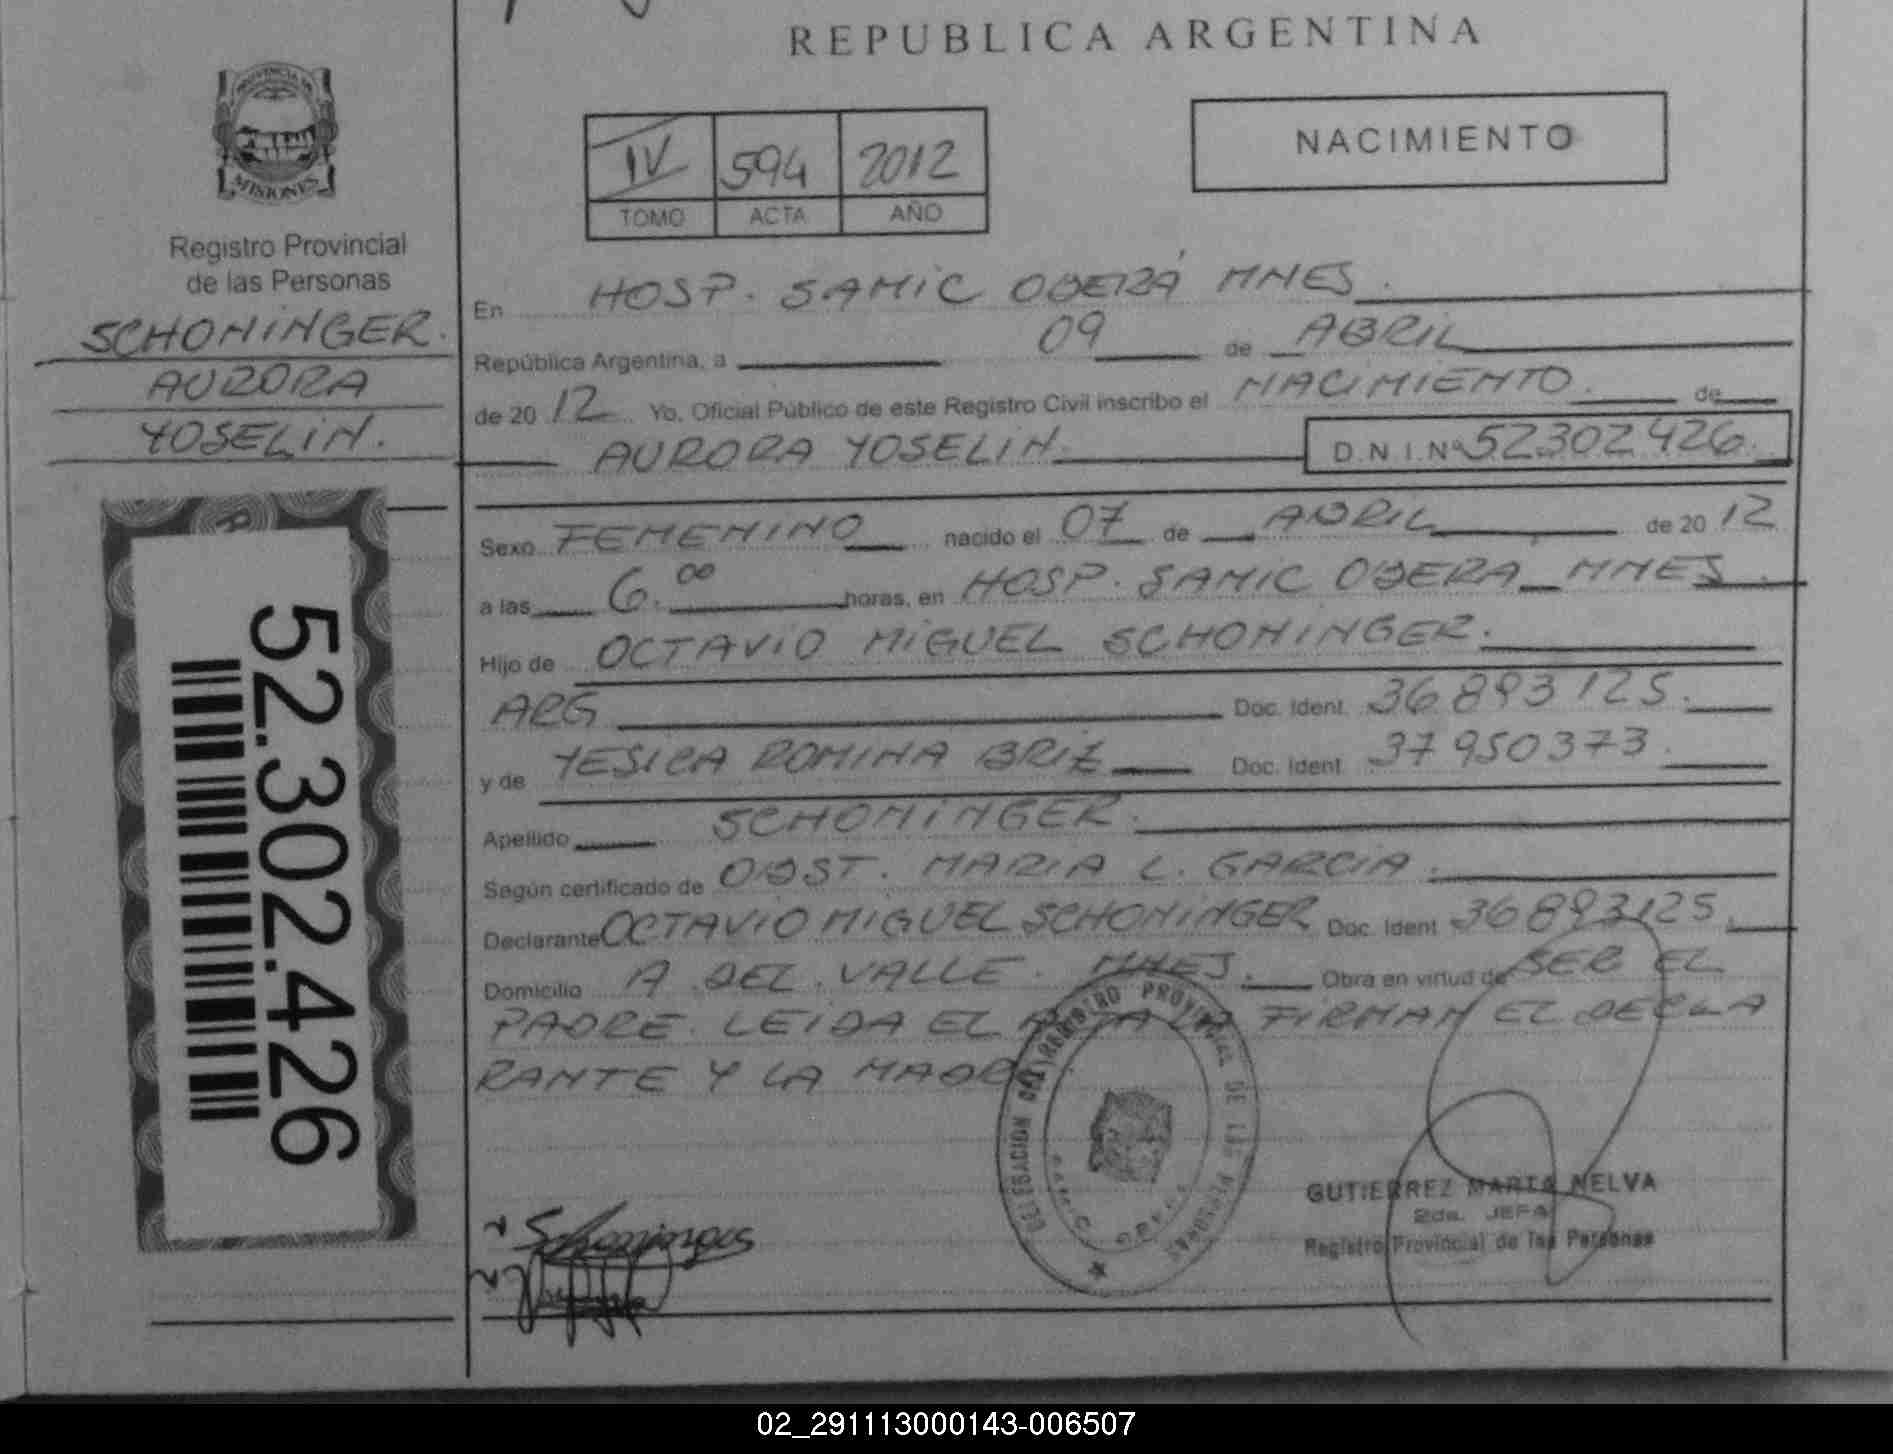 REPUBLICA ARGENTINA
PROVINCIA DE
MISIONES
Registro Provincial
de las Personas
SCHONINGER.
AURORA
YOSELIN.
52.302.426
IV 594 2012
TOMO ACTA AÑO
NACIMIENTO
En HOSP. SAMIC OBERÁ MNES.
República Argentina, a 09 de ABRIL
de 20 12 Yo, Oficial Público de este Registro Civil inscribo el NACIMIENTO. de
AURORA YOSELIN. D.N.I.Nº 52302426.
Sexo FEMENINO nacido el 07 de ABRIL de 20 12
a las 6.00 horas, en HOSP. SAMIC OBERA MNES.
Hijo de OCTAVIO MIGUEL SCHONINGER.
ARG Doc. Ident. 36893125.
y de YESICA ROMINA BRIZ Doc. Ident. 37950373.
Apellido SCHONINGER.
Según certificado de OBST. MARIA L. GARCIA.
Declarante OCTAVIO MIGUEL SCHONINGER Doc. Ident. 36893125.
Domicilio A. DEL. VALLE. MNES. Obra en virtud de SER EL
PADRE. LEIDA EL ACTA LA FIRMAN EL DECLA
RANTE Y LA MADRE
DELEGACION DEL REGISTRO PROVINCIAL DE LAS PERSONAS
GUTIERREZ MARTA NELVA
2da. JEFA
Registro Provincial de las Personas
02_291113000143-006507